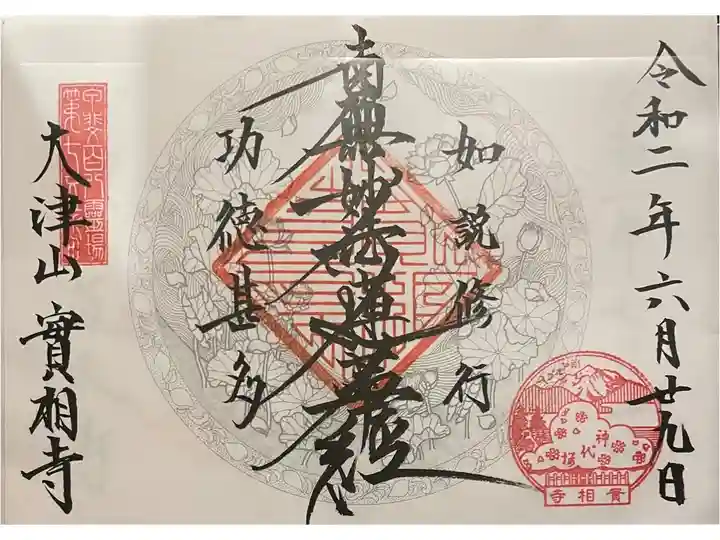 令和二年六月廿九日
如説修行
南無妙法蓮華経
功徳甚多
甲斐百八霊場
大津山 實相寺
神代桜
實相寺